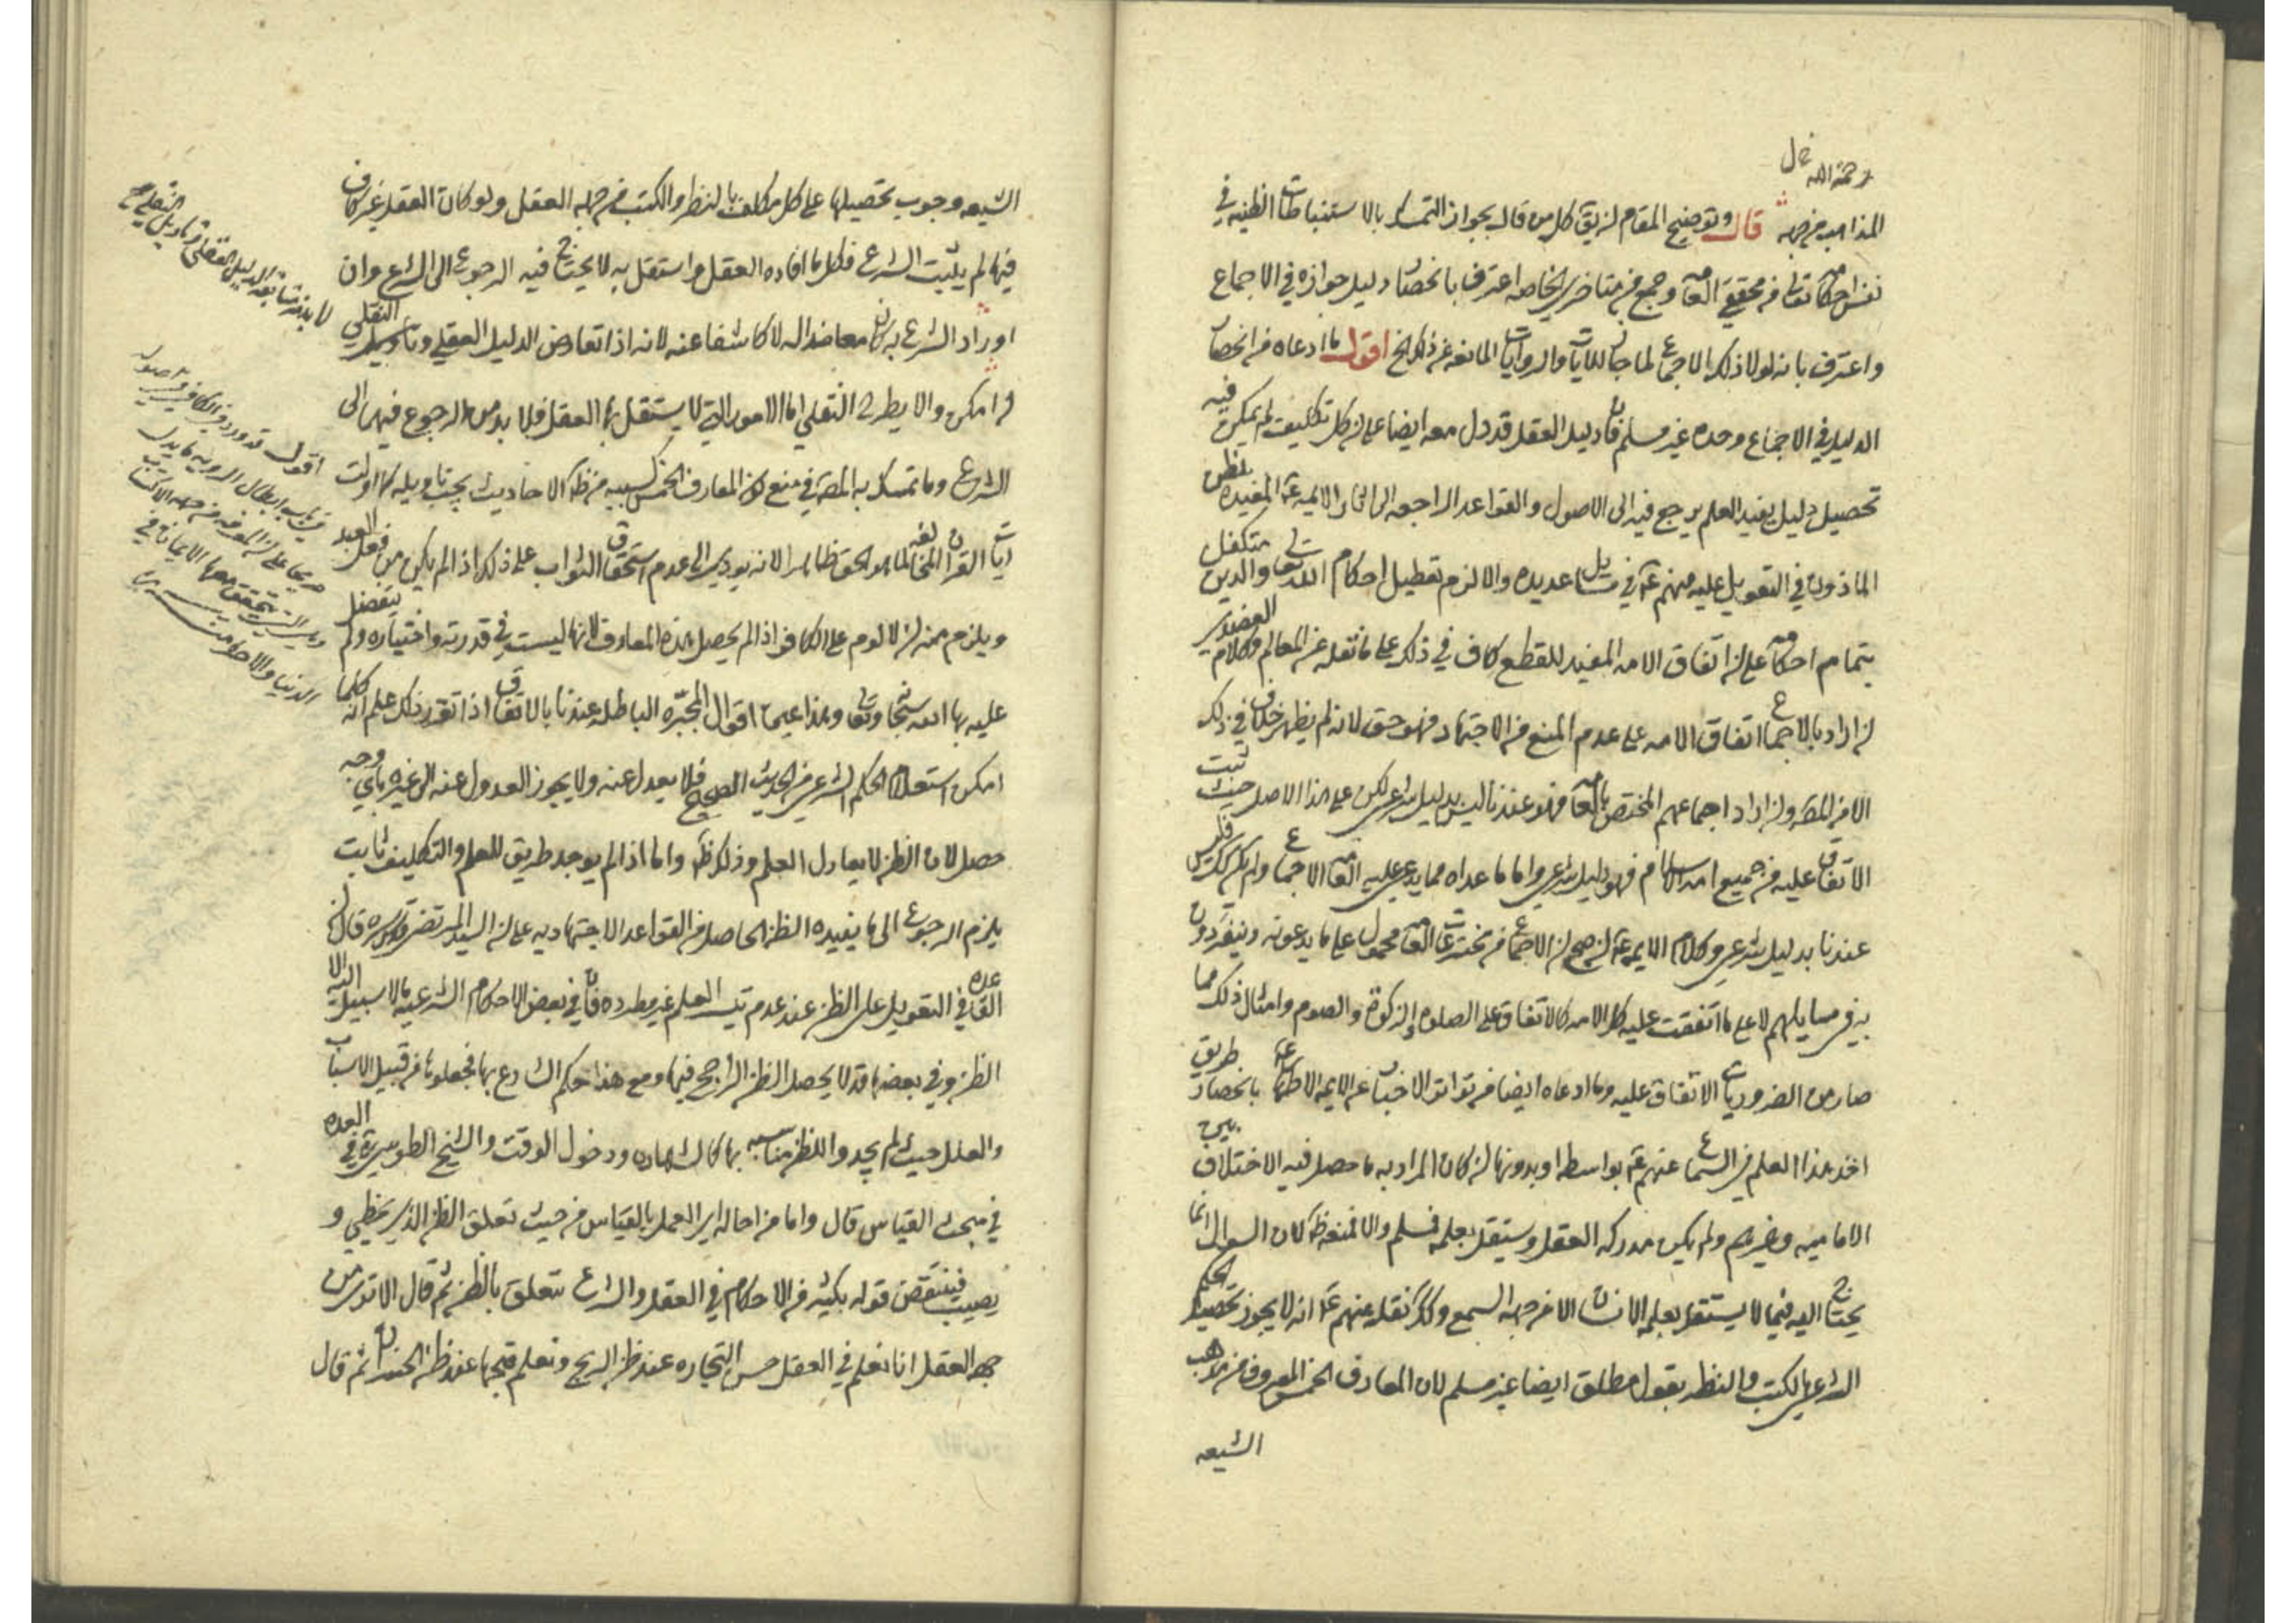 رحمة الله قال
المذاهب من جهة قال وتوضيح المقام ان يق كل من قال بجواز التمسك بالاستنباطات الظنية في
نفس احكامه تعالى من محققي العامة وجمع من متاخري الخاصة اعترف بانحصار دليل جوازه في الاجماع
واعترف بانه لولا ذلك الاجماع لما جاز للايات والروايات المانعة عن ذلك الخ اقول ما ادعاه من انحصار
الدليل في الاجماع وحده غير مسلم فان دليل العقل قد دل معه ايضا على ان كل تكليف لم يمكن فيه
تحصيل دليل يفيد العلم يرجع فيه الى الاصول والقواعد الراجعة الى الائمة ع المفيدة للظن
الماذون في التعويل عليه منهم ع في مسايل عديده والا لزم تعطيل احكام الله تعالى والدين متكفل
بتمام احكامه على ان اتفاق الامة المفيد للقطع كاف في ذلك على ما نقله عن المعالم وكلام العضدي
ان اراد بالاجماع اتفاق الامه على عدم المنع من الاجتهاد فهو حق لانه لم يظهر خلاف في ذلك
الا من المص وان اراد اجماعهم المختص بالعامة فهو عندنا ليس بدليل شرعي لكن على هذا الاصل حيث ثبت
الاتفاق عليه من جميع امة الاسلام فهو دليل شرعي واما ما عداه مما يدعي عليه العامة الاجماع ولم يكن كذلك فليس
عندنا بدليل شرعي وكلام الايمه ع ان صح ان الاجماع من مخترعات العامة محمول على ما يدعونه وينفردون
به في مسايلهم لا على ما اتفقت عليه كل الامه كالاتفاق على الصلوة والزكوة والصوم وامثال ذلك مما
صار من الضروريات الاتفاق عليه وما ادعاه ايضا من تواتر الاخبار عن الايمه الاطهار ع بانحصار طريق
اخذ هذا العلم في السماع عنهم ع بواسطه او بدونها ان كان المراد به ما حصل فيه الاختلاف بين
الاماميه وغيرهم ولم يكن مدركه العقل ويستقل بعلمه فمسلم والا فمنعه ظ لان السوال انما
يحتاج اليه فيما لا يستقل بعلمه الانسان الا من جهة السمع وكذلك نقله عنهم ع انه لا يجوز تحصيل الحكم
الشرعي بالكسب والنظر بقول مطلق ايضا غير مسلم لان المعارف الخمس المعروف من مذهب
الشيعه
الشيعه وجوب تحصيلها على كل مكلف بالنظر والكسب من جهة العقل ولو كان العقل غير كاف
فيها لم يثبت الشرع فكل ما افاده العقل واستقل به لا يحتاج فيه الرجوع الى الشرع وان
اوراد الشرع به كان معاضدا له لا كاشفا عنه لانه اذا تعارض الدليل العقلي وتاويل النقلي
ان امكن والا يطرح النقلي اما الامور التي لا يستقل بها العقل فلا بد من الرجوع فيها الى
الشرع وما تمسك به المص في منع كون المعارف الخمس كسبيه من ظ الاحاديث يجب تاويله كما اولت
ايات القران المخالفة لما هو الحق ظاهرا لانه يودي الى عدم استحقاق الثواب على ذلك اذا لم يكن من فعل العبد
ويلزم منه ان لا لوم على الكافر اذا لم يحصل هذه المعارف لانها ليست في قدرته واختياره ولم يتفضل
عليه بها الله سبحانه وتعالى وهذا عين اقوال المجبره الباطله عندنا بالاتفاق اذا تقرر ذلك علم انه كلما
امكن استعلام الحكم الشرعي من الحديث الصحيح فلا يعدل عنه ولا يجوز العدول عنه الى غيره باي وجه
حصل لان الظن لا يعادل العلم وذلك ظ واما اذا لم يوجد طريق للعلم والتكليف ثابت
يلزم الرجوع الى ما يفيده الظن الحاصل من القواعد الاجتهاديه على ان السيد المرتضى قدس سره قال ان
القاعده في التعويل على الظن عند عدم تيسر العلم غير مطرده فان في بعض الاحكام الشرعيه ما لا سبيل اليه الا
الظن وفي بعضها قد لا يحصل الظن الراجح فيها ومع هذا حكم الشارع بها فجعلوها من قبيل الاسباب
والعلل حيث لم يجدوا للظن مناسبه بها كالشهاده ودخول الوقت والشيخ الطوسي ره في العده
في مبحث القياس قال واما من احاله اي العمل بالقياس من حيث تعلق الظن الذي يخطي و
يصيب فينتقض قوله بكثير من الاحكام في العقل والشرع تتعلق بالظن ثم قال الا ترى من
جهة العقل انا نعلم في العقل حسن التجاره عند ظن الربح ونعلم قبحها عند ظن الخسران ثم قال
لا بد من متابعة الدليل العقلي وتاويل النقلي
اقول قد ورد في الكافي
في باب ابطال الرويه ما يدل
صريحا على ان المعرفه من جهة الاكتساب
الدنيا والاخره